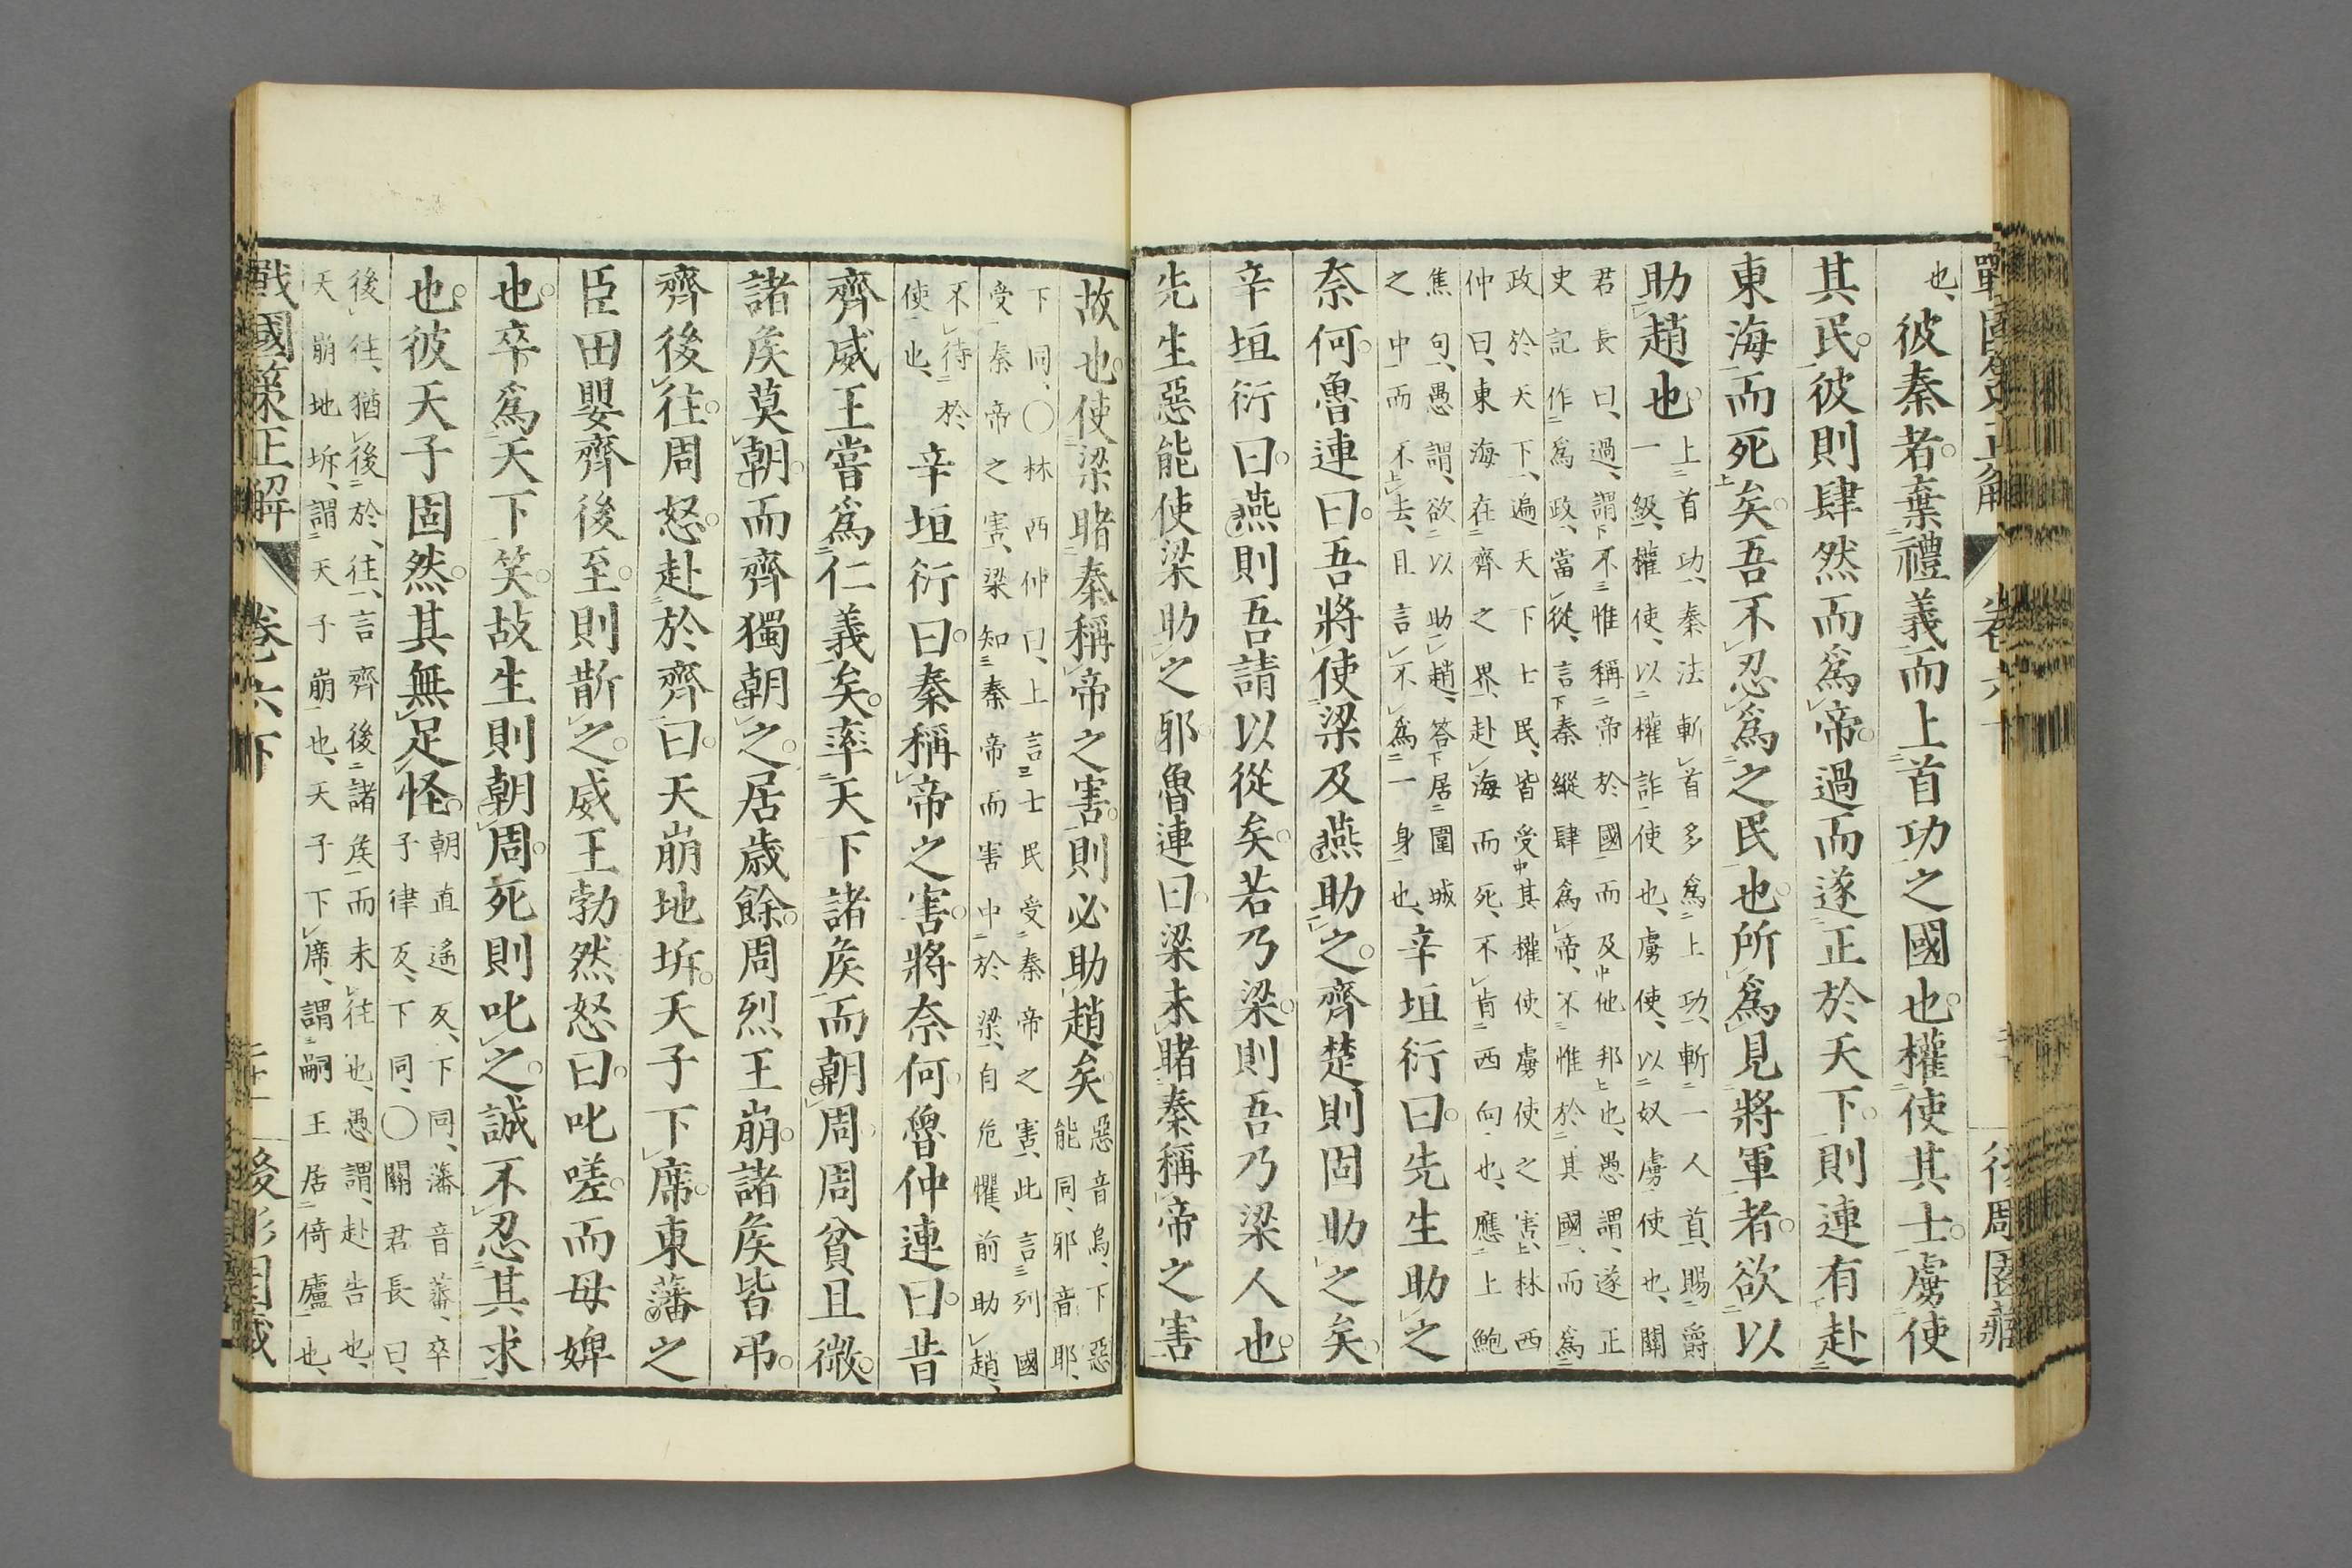 戰國策正解 卷六下 後周園藏
也、彼秦者。棄禮義而上首功之國也。權使其士。虜使
其民。彼則肆然而爲帝。過而遂正於天下。則連有赴
東海而死矣。吾不忍爲之民也。所爲見將軍者。欲以
助趙也。
上首功、秦法斬首多爲上功、斬一人首、賜爵
一級、權使、以權詐使也、虜使、以奴虜使也、關
君長曰、過、謂不惟稱帝於國而及他邦也、愚謂、遂正
史記作爲政、當從、言秦縱肆爲帝、不惟於其國、而爲
政於天下、遍天下士民、皆受其權使虜使之害、林西
仲曰、東海在齊之界、赴海而死、不肯西向也、應上鮑
焦句、愚謂、欲以助趙、答居圍城
之中而不去、且言不爲一身也、
辛垣衍曰。先生助之
奈何。魯連曰。吾將使梁及燕助之。齊楚則固助之矣。
辛垣衍曰。燕則吾請以從矣。若乃梁。則吾乃梁人也。
先生惡能使梁助之耶。魯連曰。梁未睹秦稱帝之害
故也。使梁睹秦稱帝之害。則必助趙矣。
惡音烏、下惡
能同、邪音耶、
下同、〇林西仲曰、上言士民受秦帝之害、此言列國
受秦帝之害、梁知秦帝而害中於梁、自危懼、前助趙、
不待於
使也、
辛垣衍曰。秦稱帝之害。將奈何。魯仲連曰。昔
齊威王嘗爲仁義矣。率天下諸矦而朝周。周貧且微。
諸矦莫朝。而齊獨朝之。居歲餘。周烈王崩。諸矦皆弔。
齊後往。周怒。赴於齊曰。天崩地坼。天子下席。東藩之
臣田嬰齊後至。則斮之。威王勃然怒曰。叱嗟。而母婢
也。卒爲天下笑。故生則朝周。死則叱之。誠不忍其求
也。彼天子固然。其無足怪。
朝直遙反、下同、藩音蕃、卒
子律反、下同、〇關君長曰、
後往、猶後於往、言齊後諸矦而未往也、愚謂、赴告也、
天崩地坼、謂天子崩也、天子下席、謂嗣王居倚廬也、
戰國策正解 卷六下 後周園藏